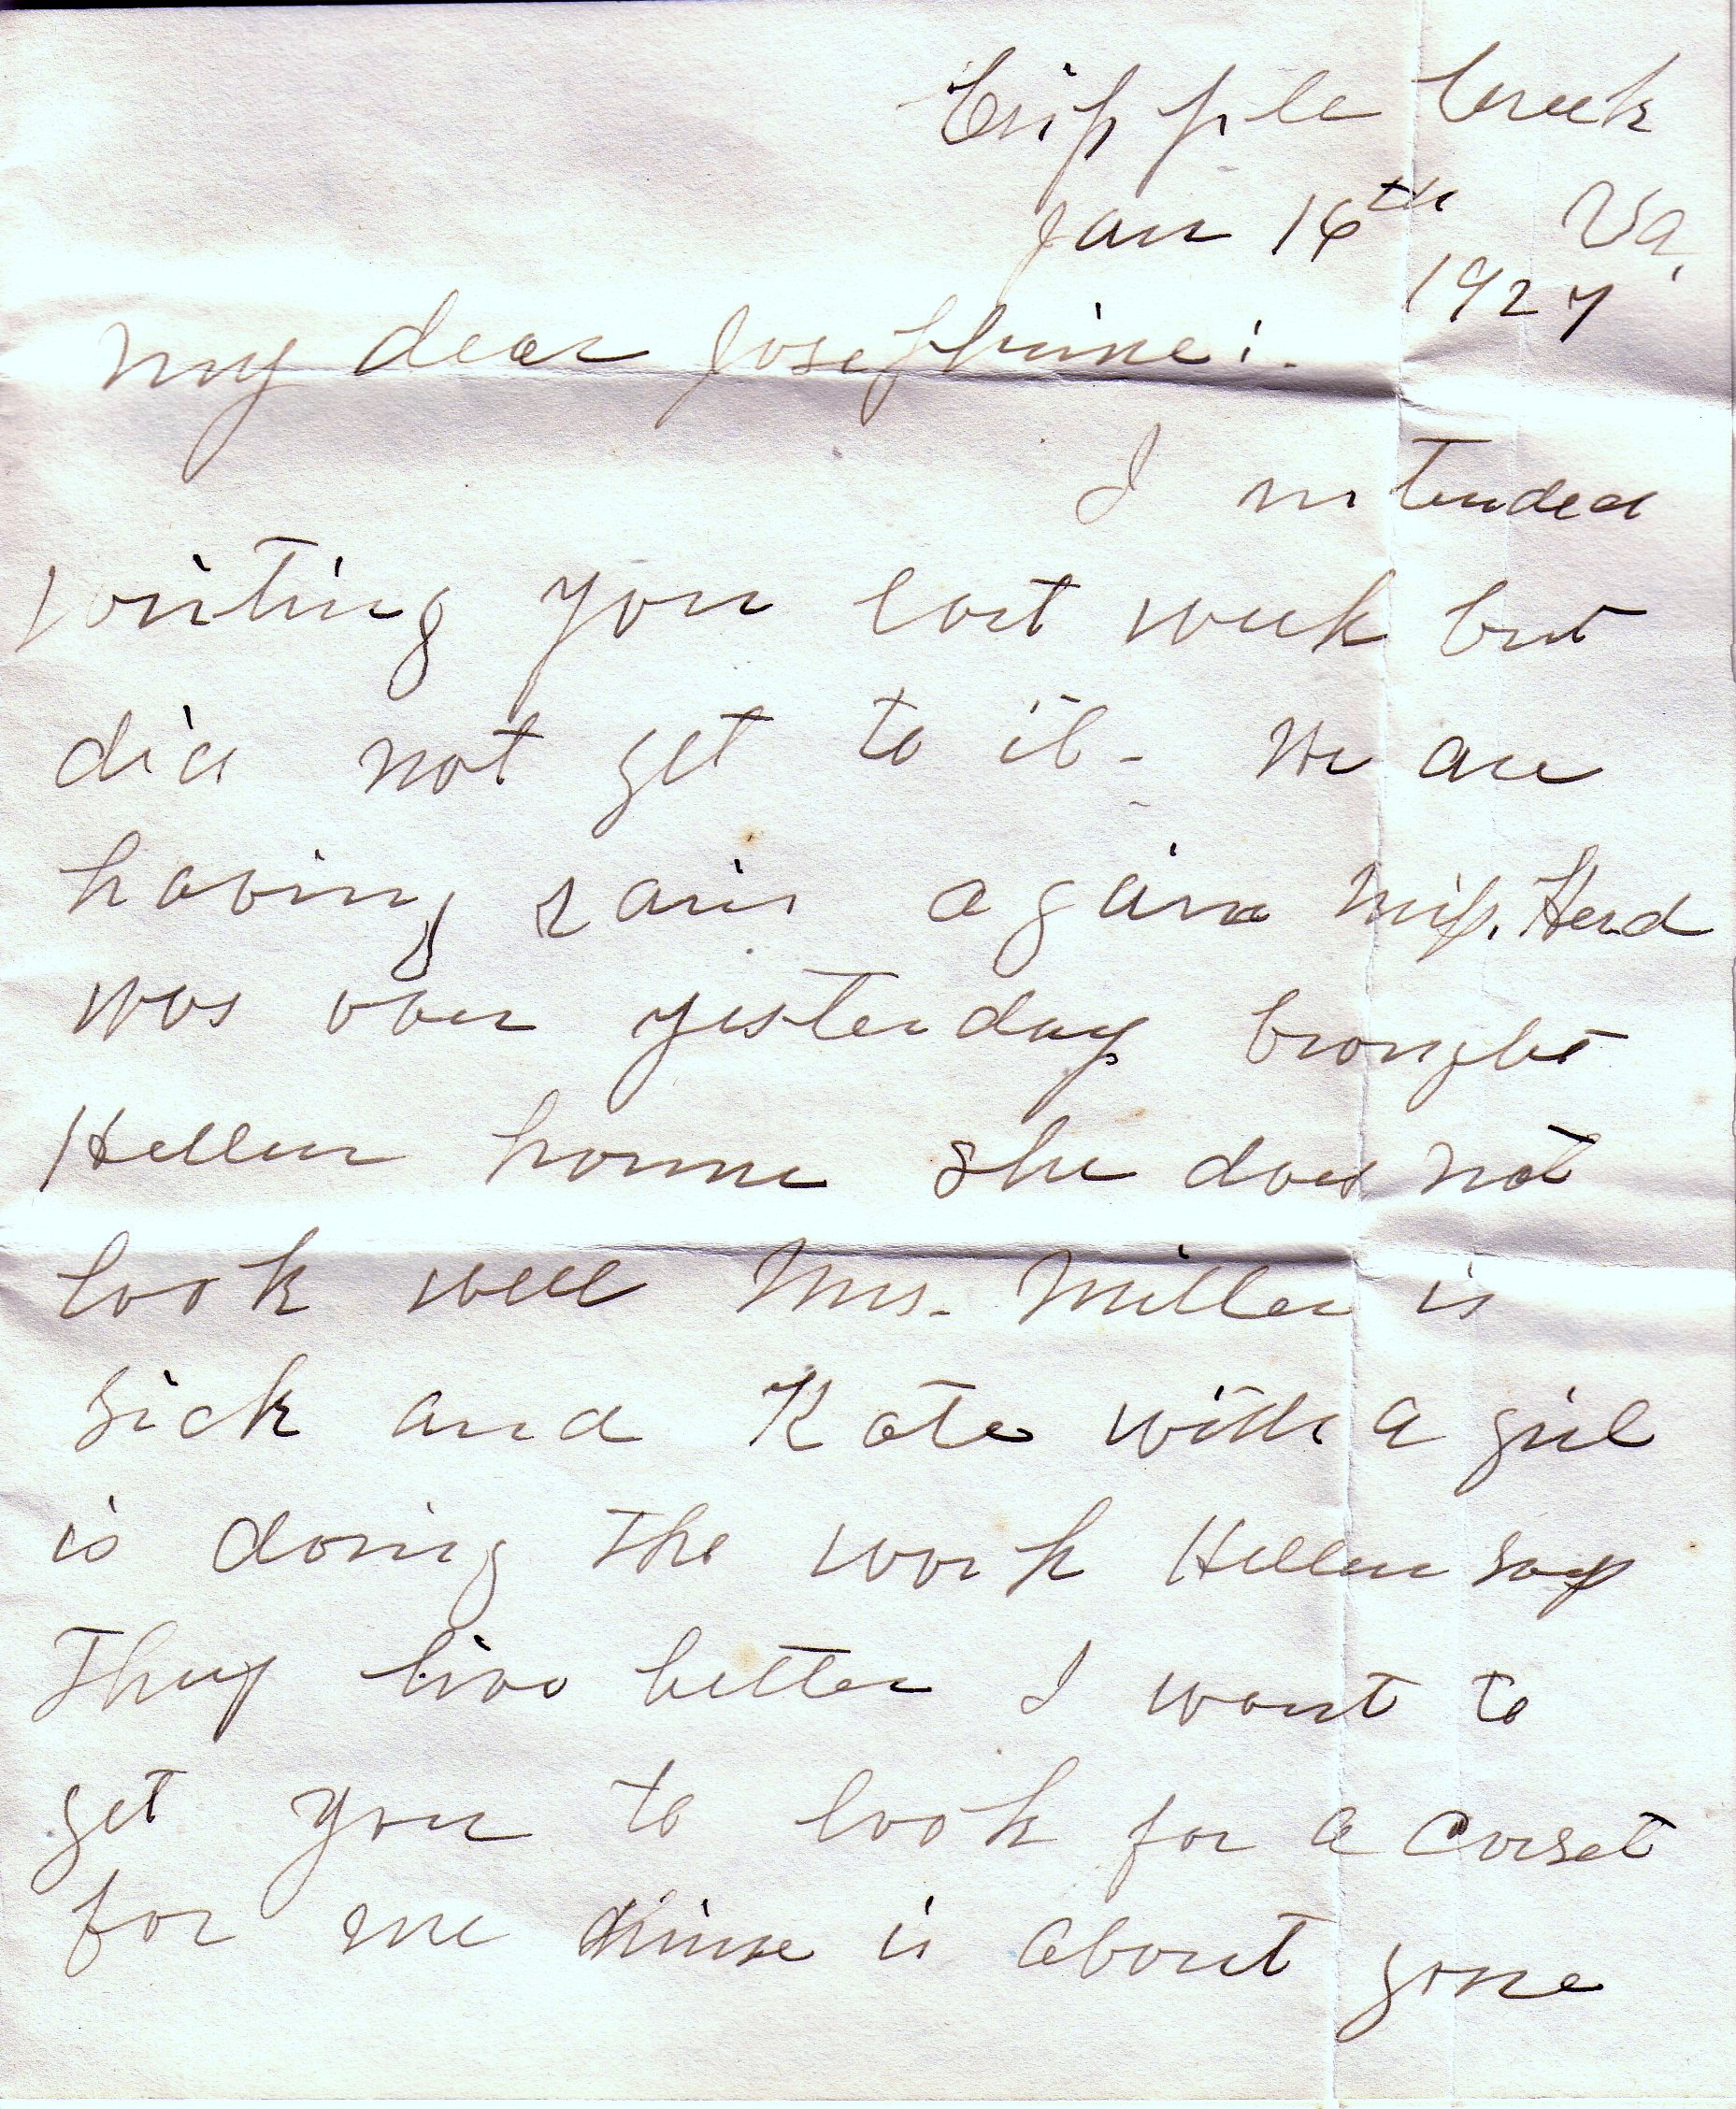 Cripple Creek
Jan 16th Va.
1927
My dear Josephine:.
I intended
writing you last week but
did not get to it - We are
having rain again Miss. Herd
was over yesterday brought
Hellen home she does not
look well Mrs. Miller is
sick and Kate with a girl
is doing the work Hellen says
They live better I want to
get you to look for a corset
for me mine is about gone